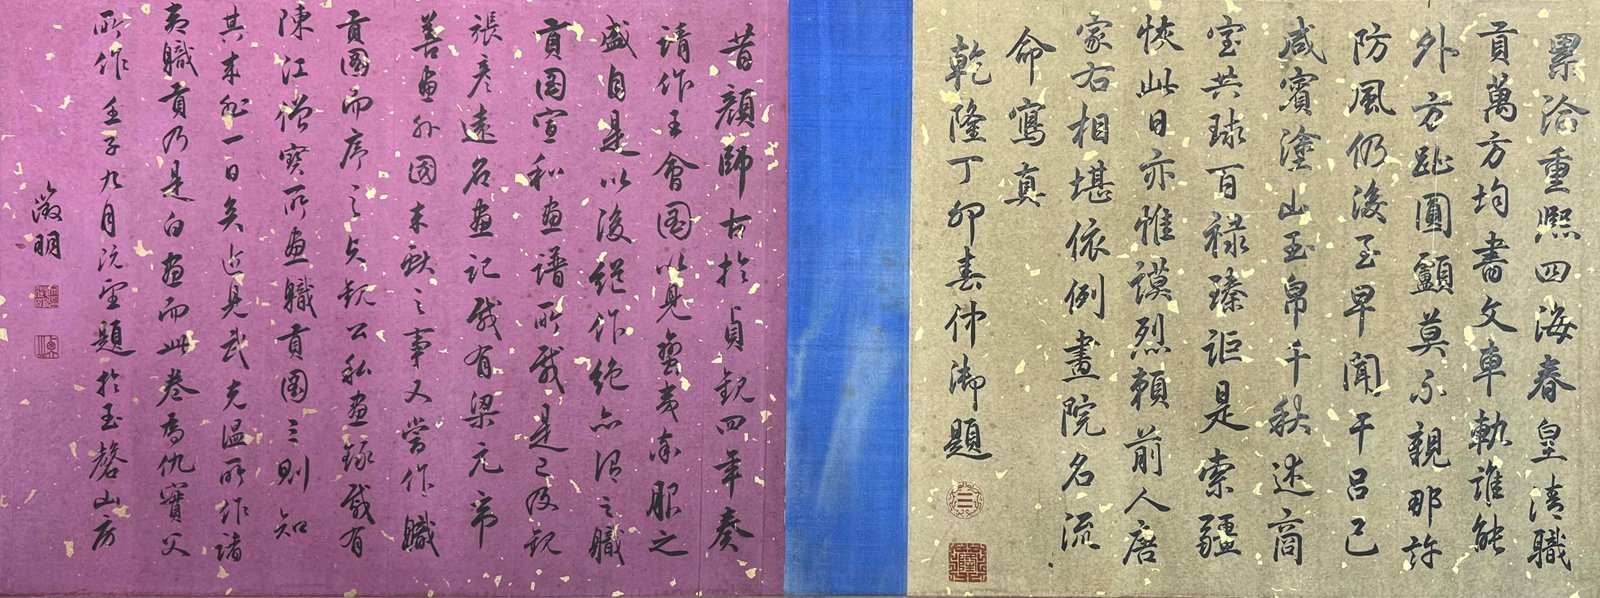 累洽重熙四海春皇清職
貢萬方均書文車軌誰能
外方趾圓顱莫不親那許
防風仍後至早聞干呂已
咸賓塗山玉帛千秋述商
室共球百祿臻詎是索疆
恢此日亦惟謨烈賴前人唐
家右相堪依例畫院名流
命寫真
乾隆丁卯春仲御題
三
乾隆
昔顏師古於貞觀四年奏
請作王會圖以見蠻夷率服之
盛自是以後繼作絕不得之職
貢圖宣和畫譜所載是已及觀
張彥遠名畫記載有梁元帝
善畫外國來獻之事又嘗作職
貢圖而序之貞觀公私畫錄載有
陳江僧寶所畫職貢圖三則知
其來非一日矣近見武克溫所作諸
夷職貢乃是白畫而此卷為仇實父
所作 壬子九月既望題於玉磬山房
徵明